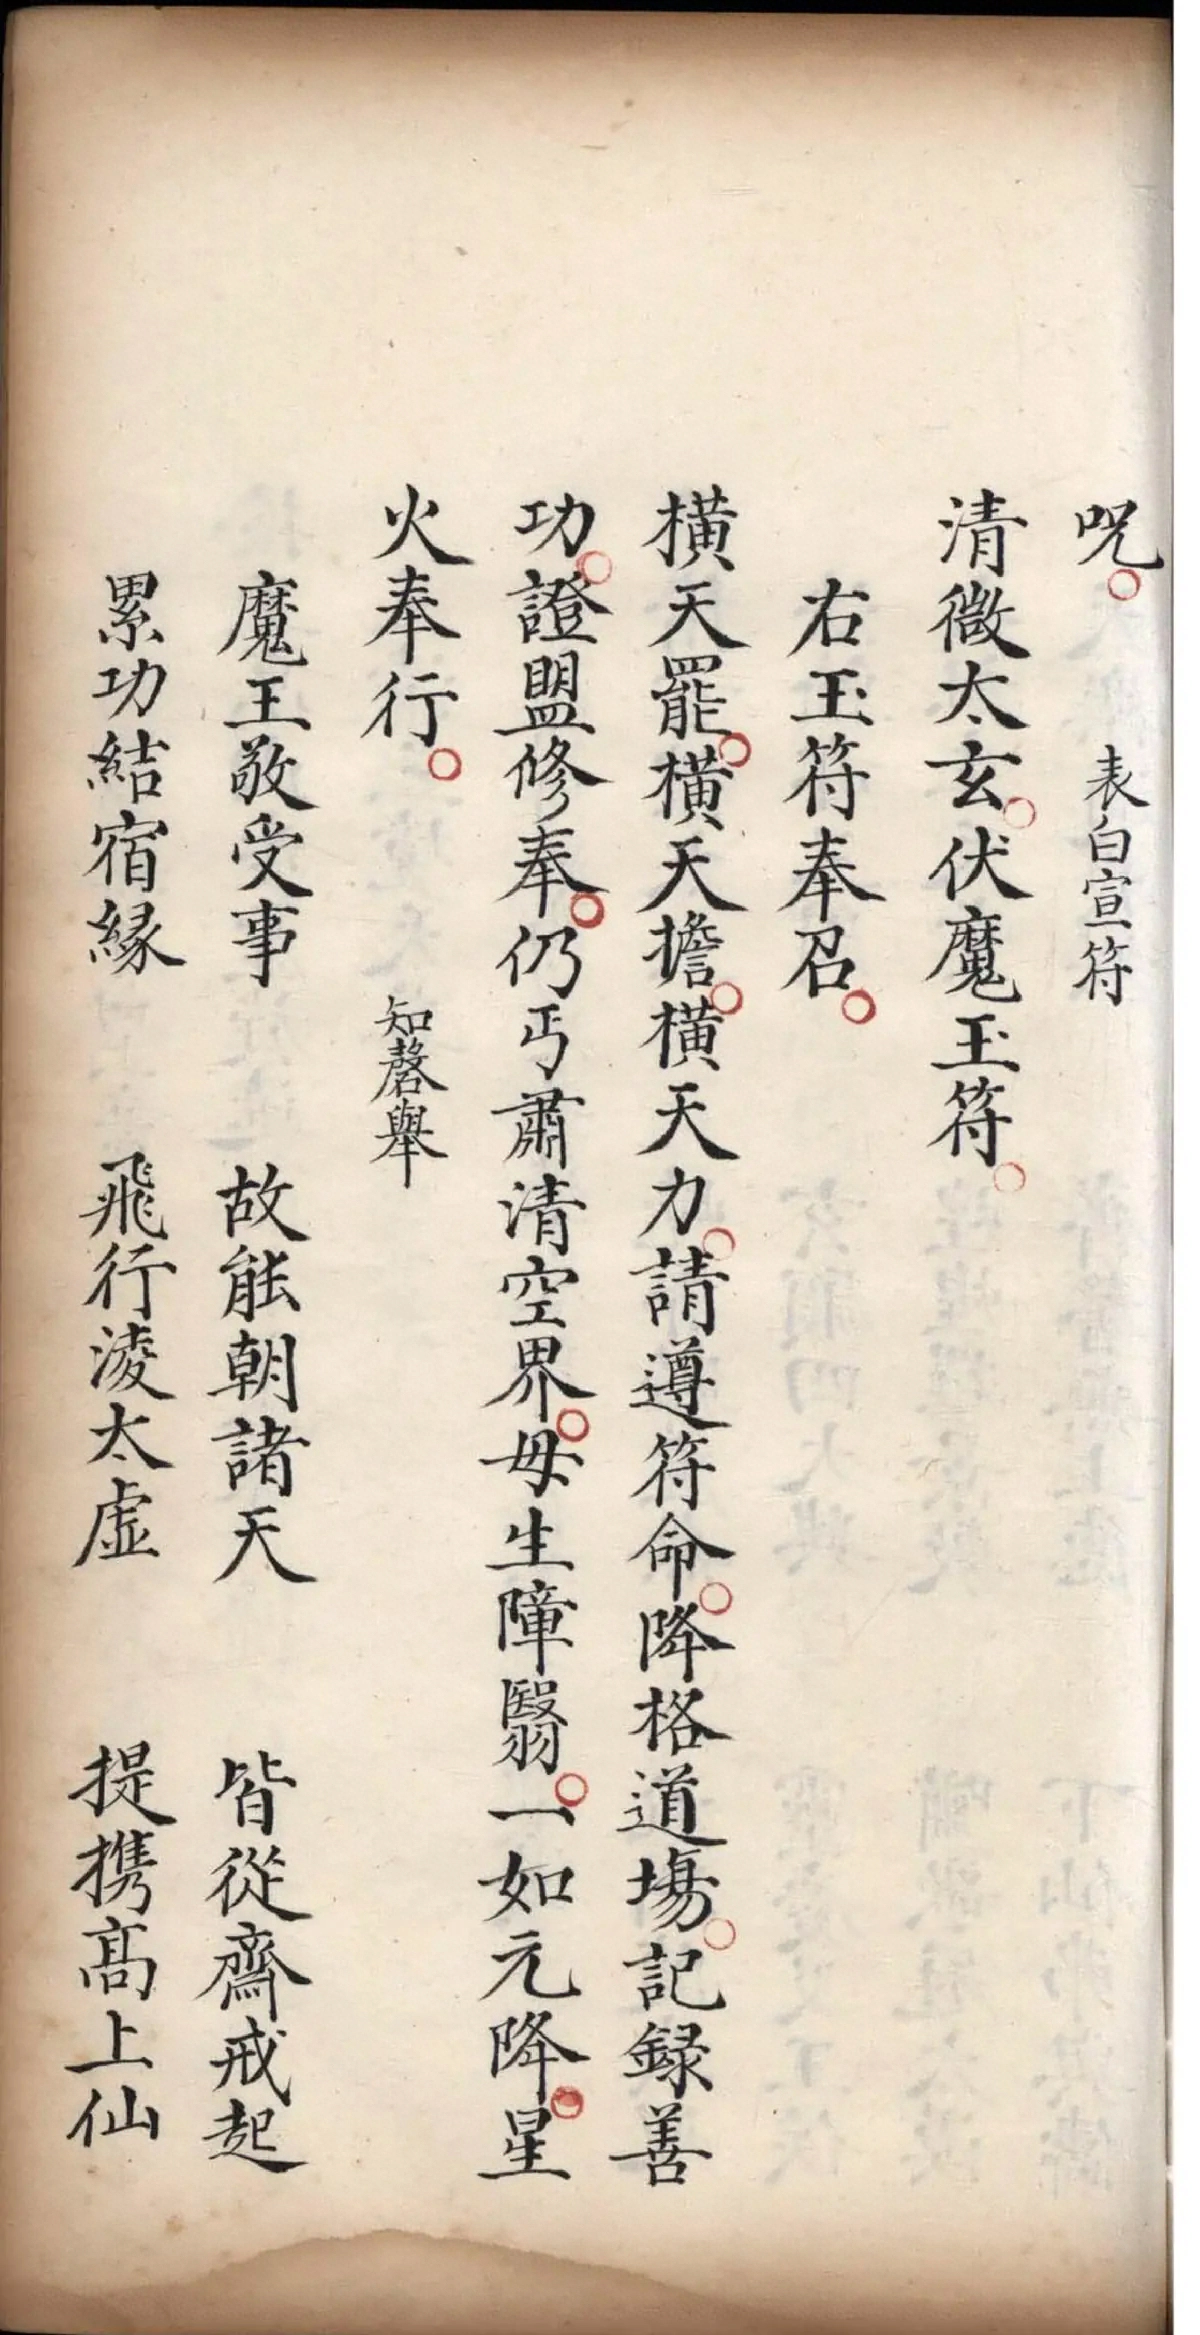 呪。　表白宣符
清微太玄。伏魔玉符。
右玉符奉召。
橫天罷。橫天擔。橫天力。請遵符命。降格道塲。記録善
功。證盟修奉。仍丐肅清空界。毋生障翳。一如元降。星
火奉行。　知磬舉
魔王敬受事　故能朝諸天　皆從齋戒起
累功結宿緣　飛行淩太虛　提携髙上仙